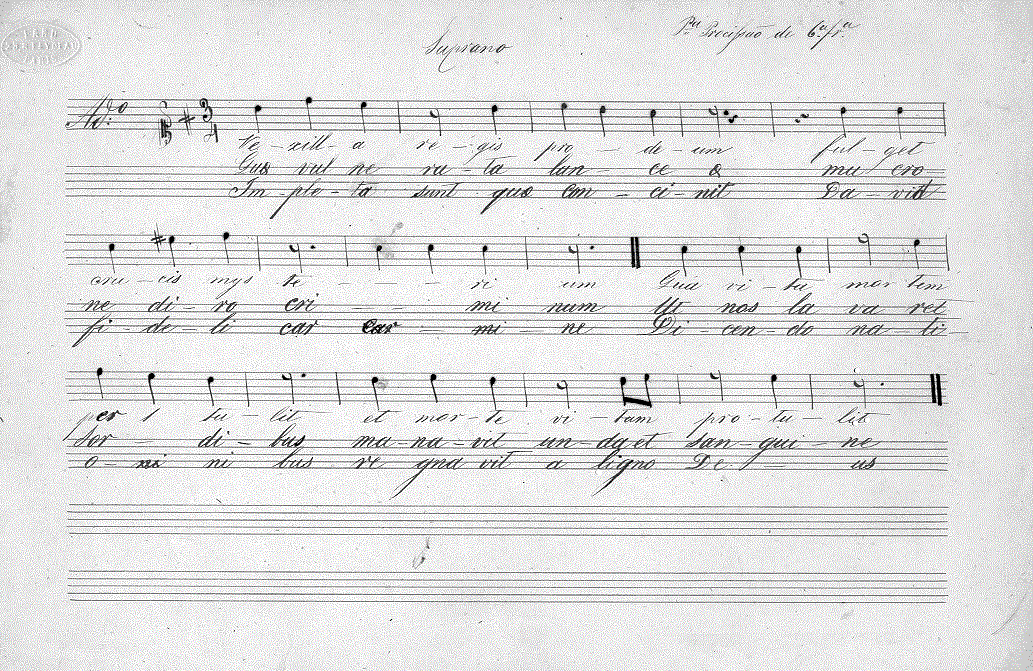 Suprano
Pa. Precisão de 6a. fra.
Ad:o 3 4
Ve - xill - a re - gis pro - de - um ful - get
Qua vul ne ra - ta lan - ce & mu cro
Im - ple - ta sunt qua con - ci - nit Da - vit
cru - cis mys te - - - - ri um Qua vi - ta mor tem
ne di - ro cri - - mi num Ut nos la va - ret
fi - de - li car car - mi - ne Di - cen - do na - ti
per tu - lit et mor - te vi - tam pro - tu - lit
Sor - di - bus ma - na - vit un - da et San - gui - ne
o - ni bus re gna vit a ligno De - us